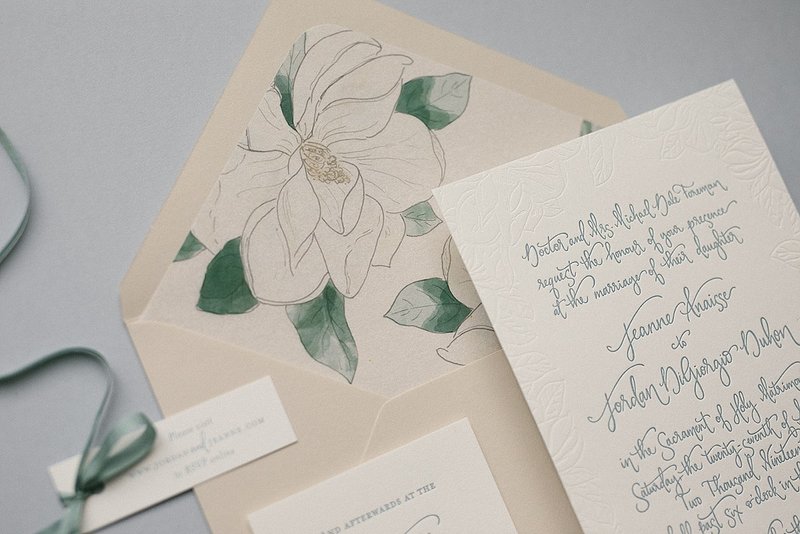 Doctor and Mrs. Michael Dale Foreman
request the honour of your presence
at the marriage of their daughter
Jeanne Anaisse
to
Jordan DiGiorgio Duhon
in the Sacrament of Holy Matrimony
Saturday the twenty-seventh of
Two Thousand Nineteen
half past Six o'clock in the
Please visit
WWW.JORDANandJEANNE.COM
to RSVP online
AND AFTERWARDS AT THE